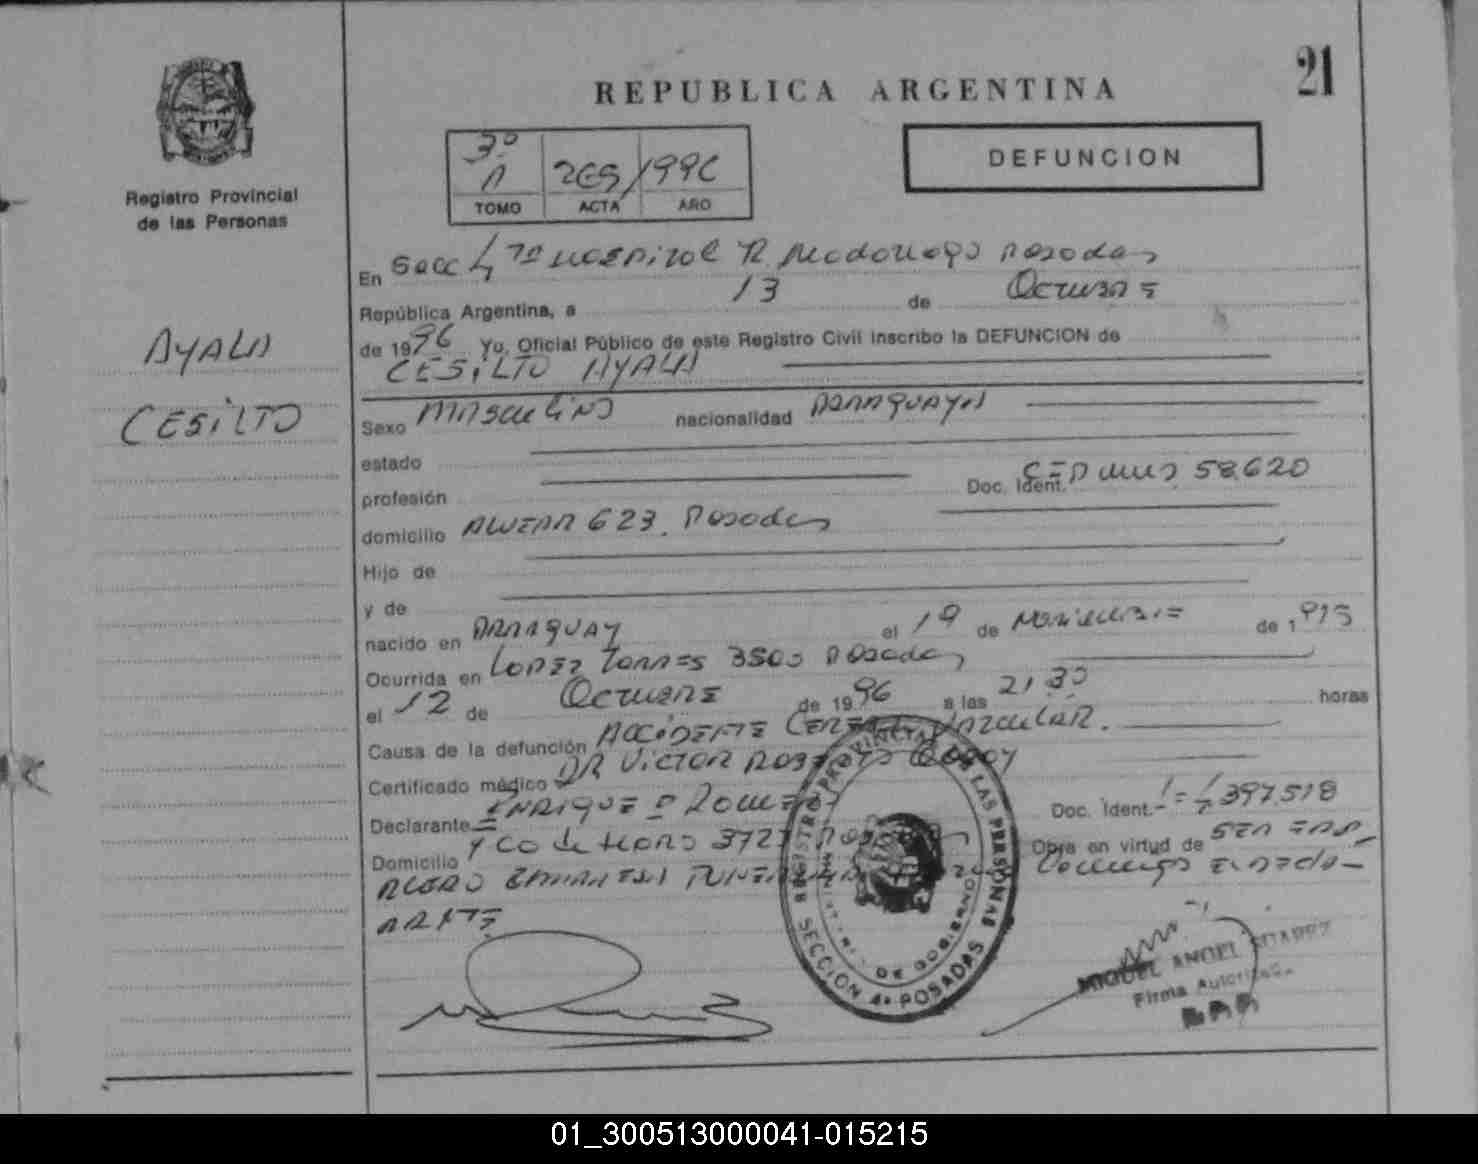 21
REPUBLICA ARGENTINA
DEFUNCION
Registro Provincial
de las Personas
3º
A 265/1996
TOMO ACTA AÑO
En Secc 4ª Hospital R. Madariaga Posadas
República Argentina, a 13 de Octubre
de 1996 Yo, Oficial Público de este Registro Civil inscribo la DEFUNCION de
CESILTO AYALA
AYALA
CESILTO
Sexo MASCULINO nacionalidad PARAGUAYA
estado
profesión Doc. Ident. CEDULA 58.620
domicilio ALVEAR 623. Posadas
Hijo de
y de
nacido en PARAGUAY el 19 de Noviembre de 1913
Ocurrida en LOPEZ TORRES 3500 Posadas
el 12 de OCTUBRE de 1996 a las 21,30 horas
Causa de la defunción ACCIDENTE CEREBRO VASCULAR.
Certificado médico DR VICTOR GODOY
Declarante ENRIQUE Doc. Ident. 7.397.518
Domicilio 372 Posadas Obra en virtud de SER EMP.
ACORD
REGISTRO PROVINCIAL DE LAS PERSONAS
DE GOBIERNO
SECCION 4ª POSADAS
MIGUEL ANGEL SUAREZ
Firma Autorizada
01_300513000041-015215